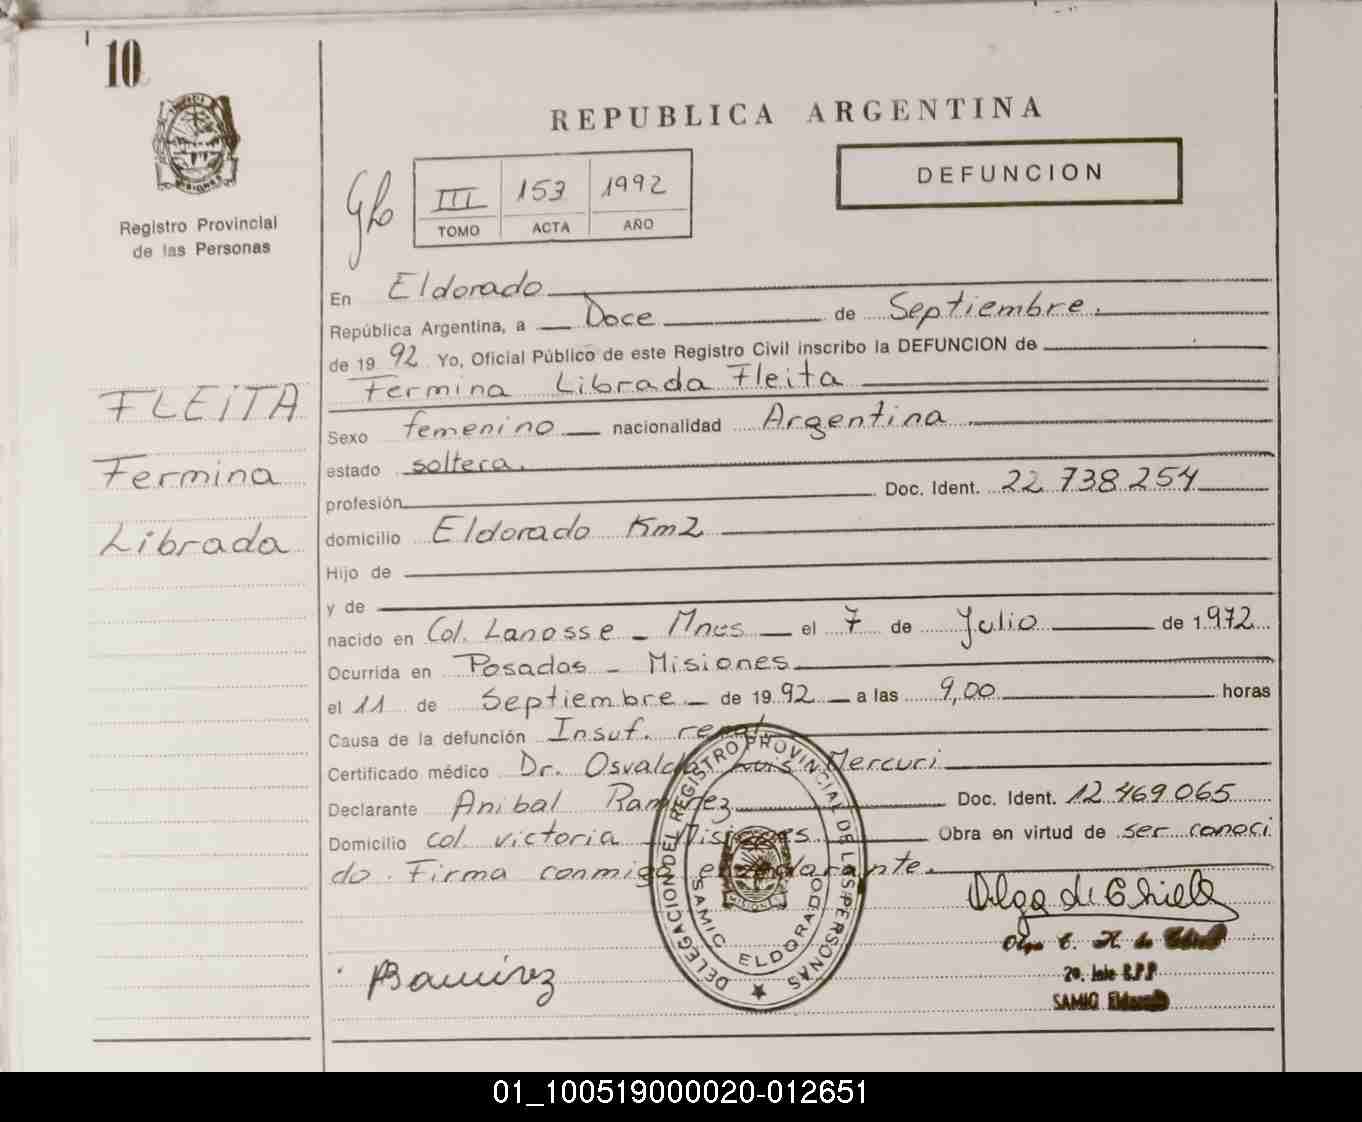 10
REPUBLICA ARGENTINA
DEFUNCION
III 153 1992
TOMO ACTA AÑO
Registro Provincial
de las Personas
En Eldorado
República Argentina, a Doce de Septiembre.
de 19 92 Yo, Oficial Público de este Registro Civil inscribo la DEFUNCION de
Fermina Librada Fleita
FLEITA
Fermina
Librada
Sexo femenino nacionalidad Argentina
estado soltera.
profesión Doc. Ident. 22 738 254
domicilio Eldorado Km2
Hijo de
y de
nacido en Col. Lanosse - Mnes el 7 de Julio de 1972
Ocurrida en Posadas - Misiones
el 11 de Septiembre de 19 92 a las 9,00 horas
Causa de la defunción Insuf. renal
Certificado médico Dr. Osvaldo Luis Mercuri
Declarante Anibal Ramirez Doc. Ident. 12 469 065
Domicilio col. victoria - Misiones Obra en virtud de ser conoci
do. Firma conmigo el declarante.
DELEGACION DEL REGISTRO PROVINCIAL DE LAS PERSONAS
SAMIC ELDORADO
MISIONES
Olga de Chiele
ARamirez
Olga C. H. de
2a. Jefe R.P.P
SAMIC Eldorado
01_100519000020-012651